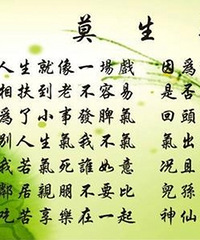 莫 生
人生就像一場戲 因為
相扶到老不容易 是否
為了小事發脾氣 回頭
別人生氣我不氣 氣出
我若氣死誰如意 況且
鄰居親朋不要比 兒孫
吃苦享樂在一起 神仙